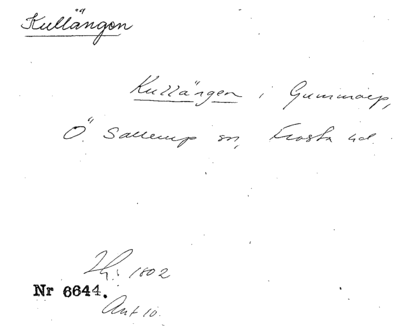 Kullängen
Kullängen i Gummarp,
Ö. Sallerup sn, Frosta hd.
Ih: 1802
Nr 6644.
Ant 10.